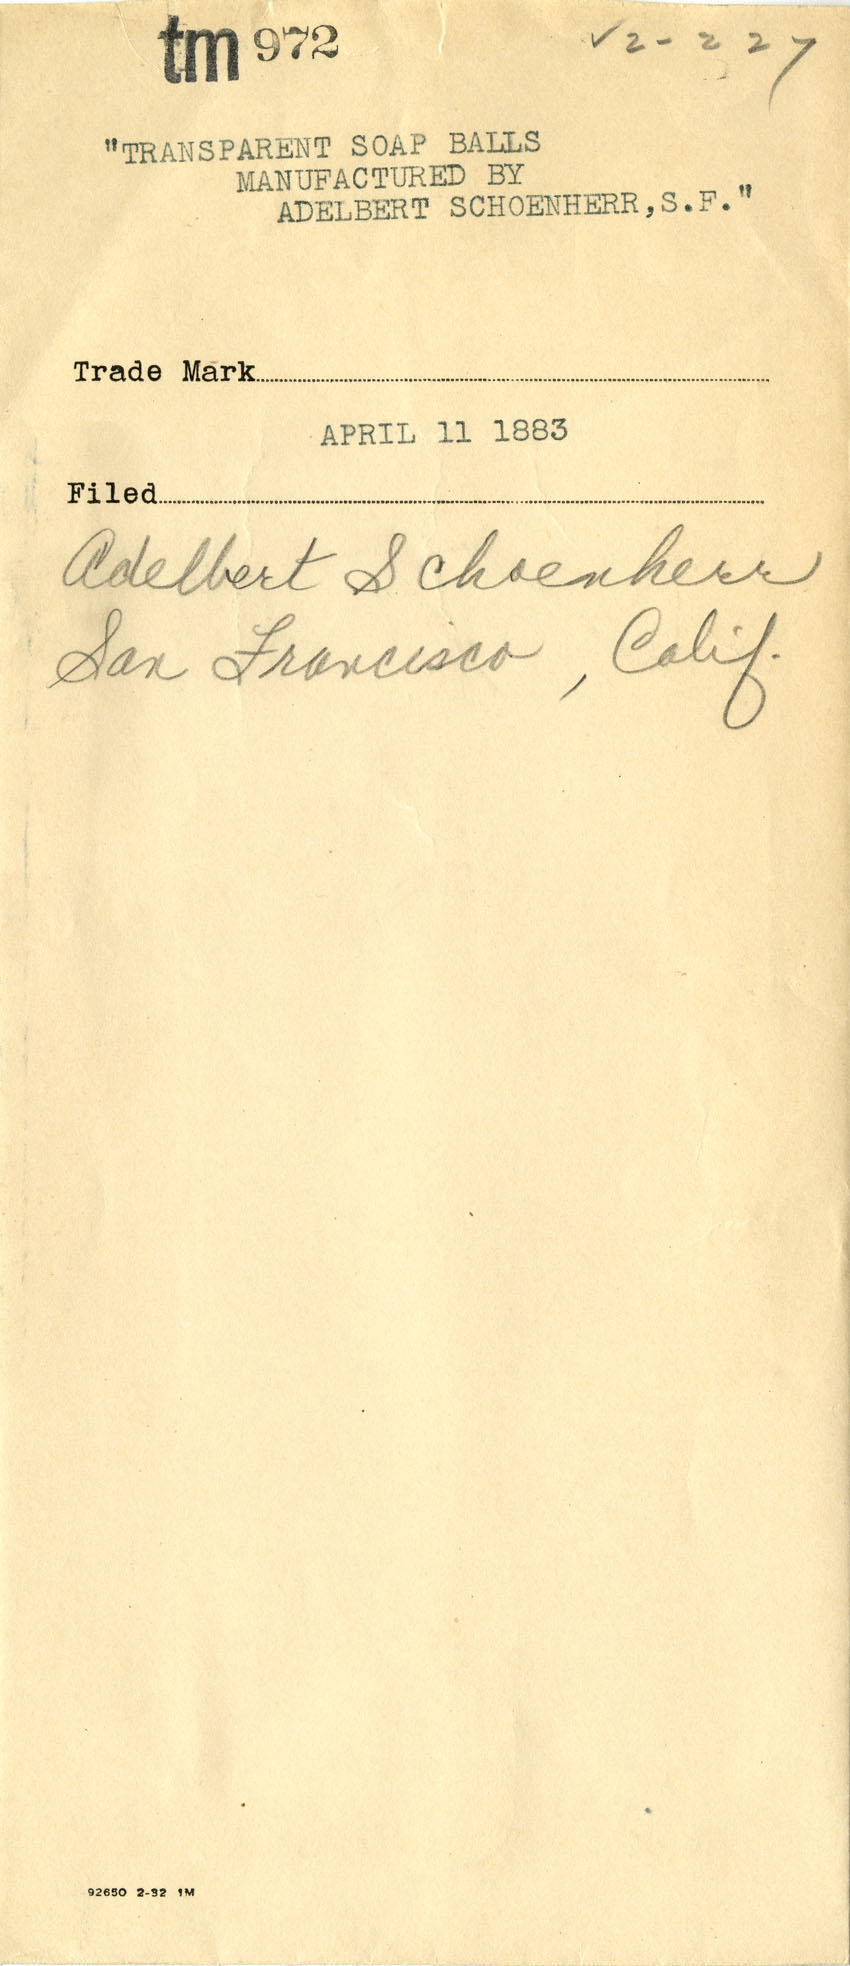 tm 972
√2-227
"TRANSPARENT SOAP BALLS
MANUFACTURED BY
ADELBERT SCHOENHERR,S.F."
Trade Mark
APRIL 11 1883
Filed
Adelbert Schoenherr
San Francisco, Calif.
92650 2-32 1M